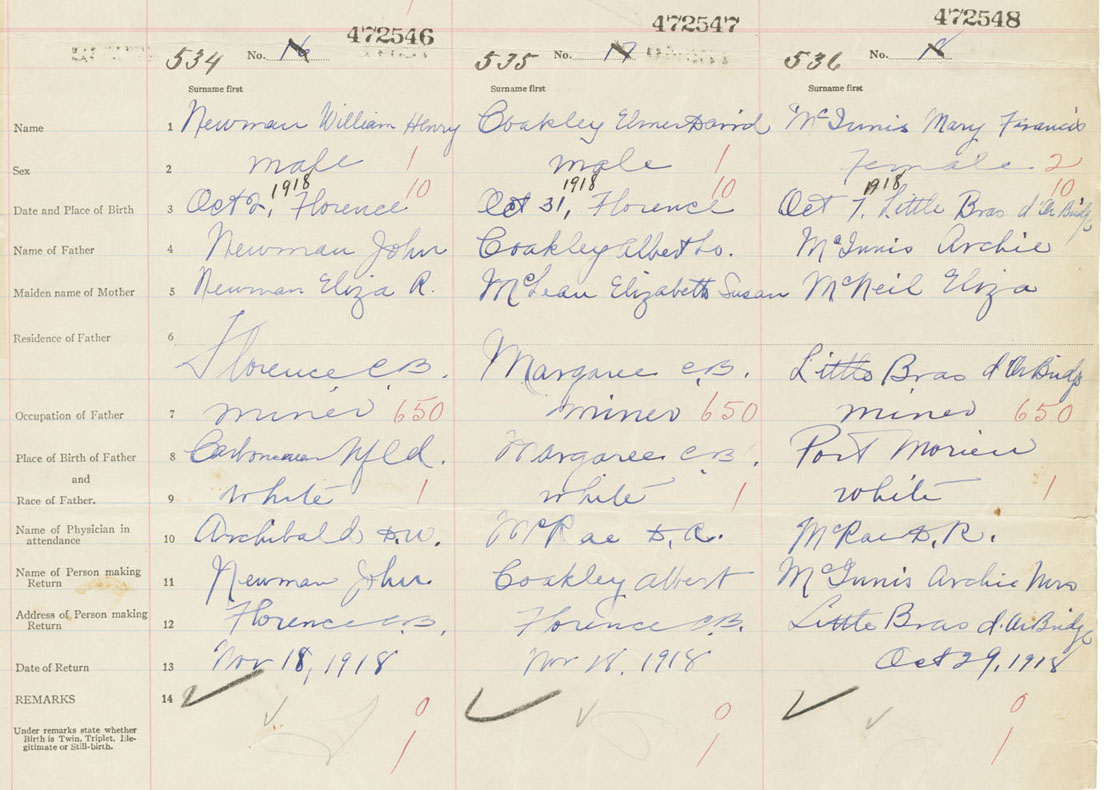 472546 472547 472548
534 No. 16 535 No. 17 536 No. 18
Surname first Surname first Surname first
Name 1 Newman William Henry Coakley Elmer David McInnis Mary Francis
Sex 2 male 1 male 1 Female 2
1918 10 1918 10 1918 10
Date and Place of Birth 3 Oct 2, Florence Oct 31, Florence Oct 7, Little Bras d'Or Bridge
Name of Father 4 Newman John Coakley Albert Lo. McInnis Archie
Maiden name of Mother 5 Newman Eliza R. McLean Elizabeth Susan McNeil Eliza
Residence of Father 6
Florence C.B. Margaree C.B. Little Bras d'Or Bridge
Occupation of Father 7 miner 650 miner 650 miner 650
Place of Birth of Father 8 Carbonear Nfld. Margaree C.B. Port Morien
and
Race of Father. 9 white 1 white 1 white 1
Name of Physician in
attendance 10 Archibald D.W. McRae D.R. McRae D.R.
Name of Person making
Return 11 Newman John. Coakley Albert McInnis Archie Mrs
Address of Person making
Return 12 Florence C.B. Florence C.B. Little Bras d'Or Bridge
Date of Return 13 Nov 18, 1918 Nov 18, 1918 Oct 29, 1918
REMARKS 14 0 0 0
Under remarks state whether
Birth is Twin, Triplet, Ille-
gitimate or Still-birth. 1 1 1